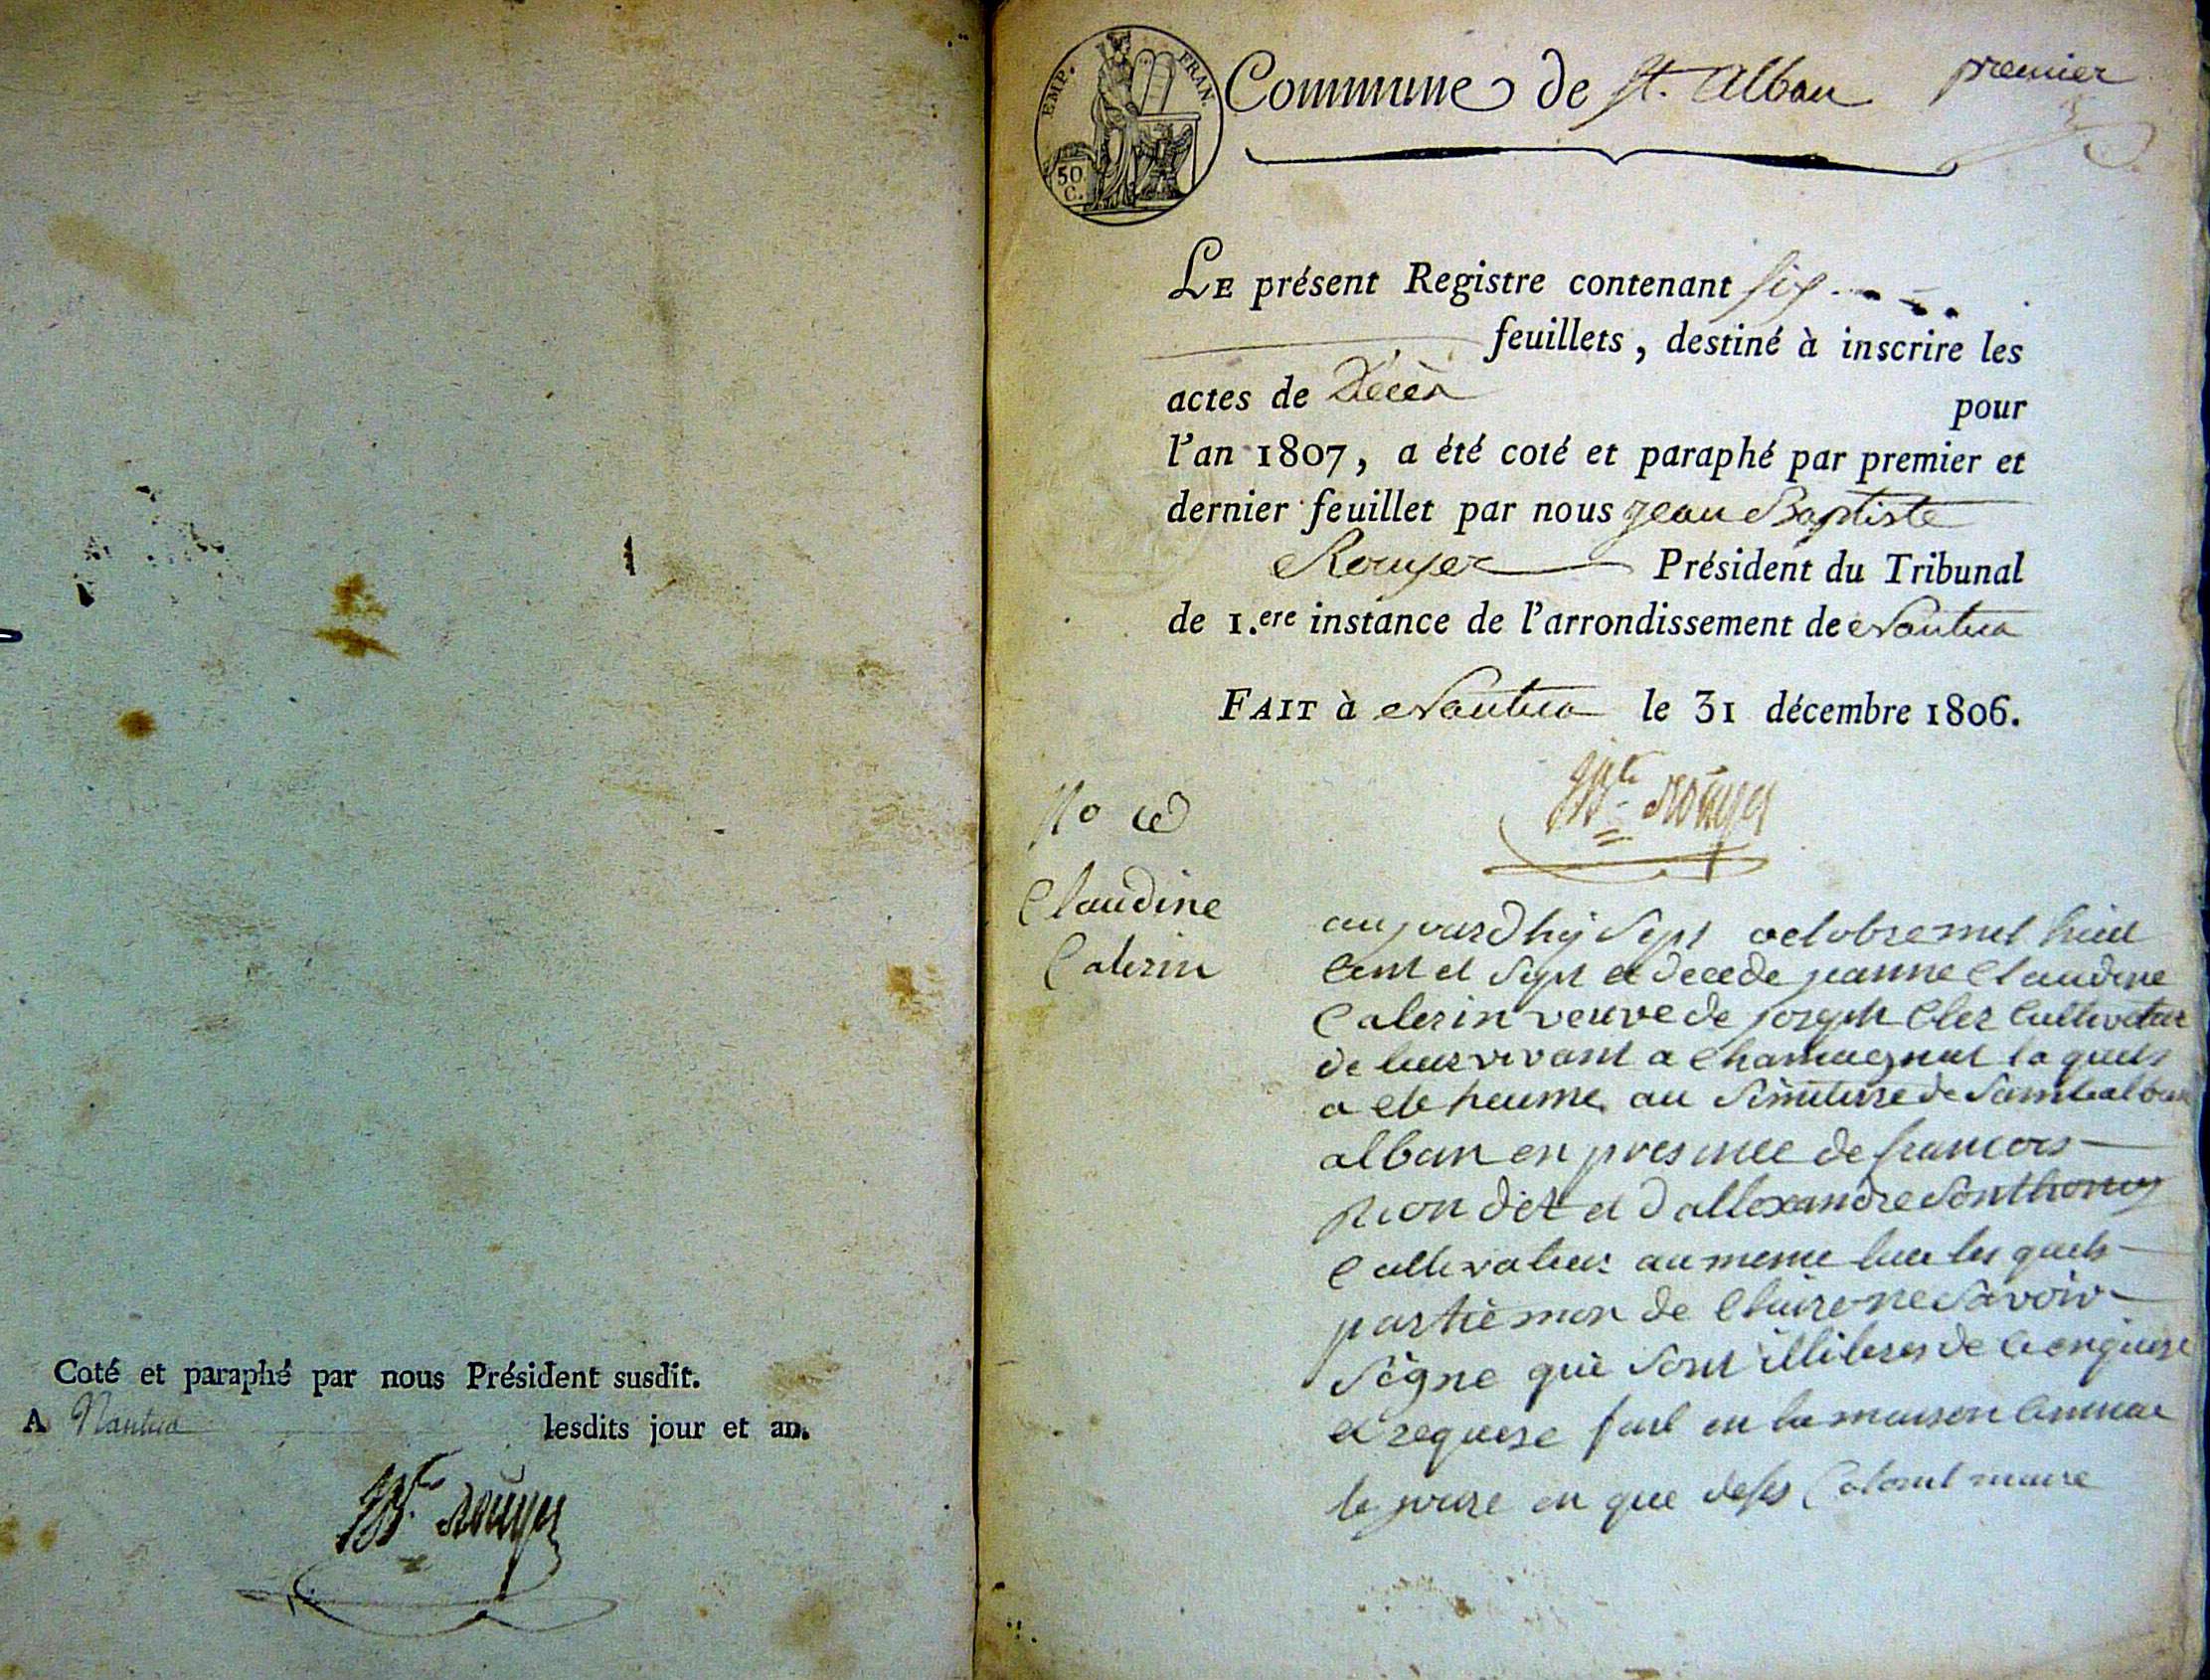 Coté et paraphé par nous Président susdit.
A Nantua lesdits jour et an.
JBte Rouyer
EMP. FRAN.
50 C.
Commune de St. Alban premier
LE présent Registre contenant six
feuillets, destiné à inscrire les
actes de Décès pour
l'an 1807, a été coté et paraphé par premier et
dernier feuillet par nous Jean Baptiste
Rouyer Président du Tribunal
de 1.ere instance de l'arrondissement de Nantua
FAIT à Nantua le 31 décembre 1806.
JBte Rouyer
No
Claudine
Calerin
aujourdhÿ sept octobre mil huit
cent et sept et decede jeanne Claudine
Calerin veuve de joseph Cultivateur
de leur vivant a laquels
a ete au de
alban en presance de francois
piondet et d allexandre Sonthonoy
Cultivateur au meme lieu les quels
partie mon de ne savoir
signe que sont de
et requise fait en la maison
le jour en que maire